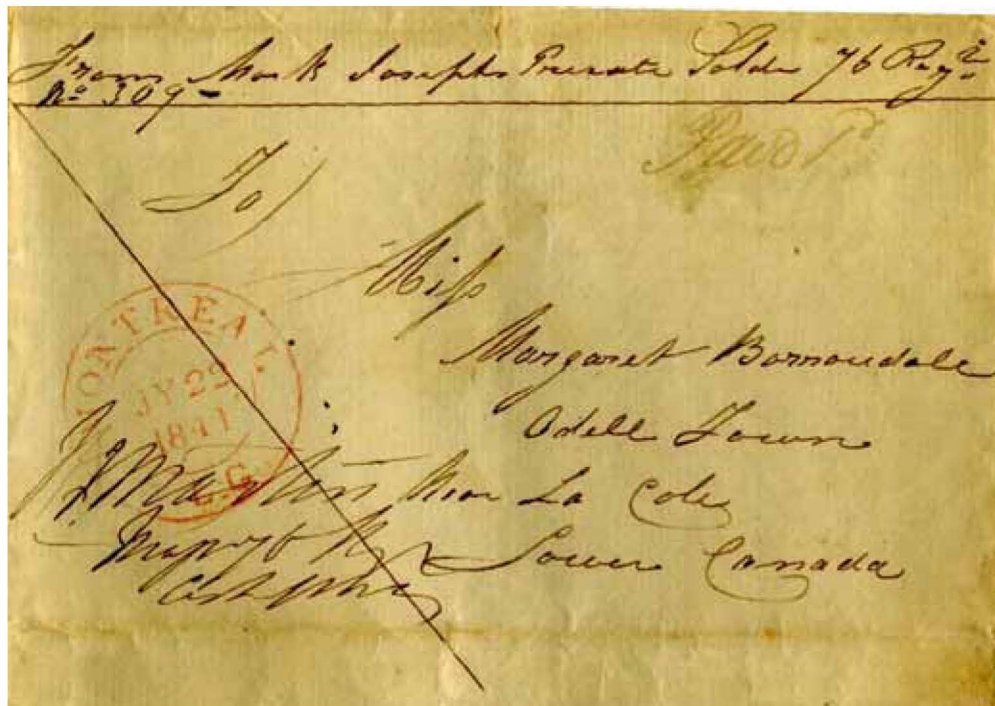 From Mark Josephs Private Soldr 76 Regt
No 309
Paid 1d
To
Miss
Margaret Borroudale
Odell Town
Near La Cole
Lower Canada
MONTREAL
JY 22
1841
L.C.
Martin
Major 76 Rgt